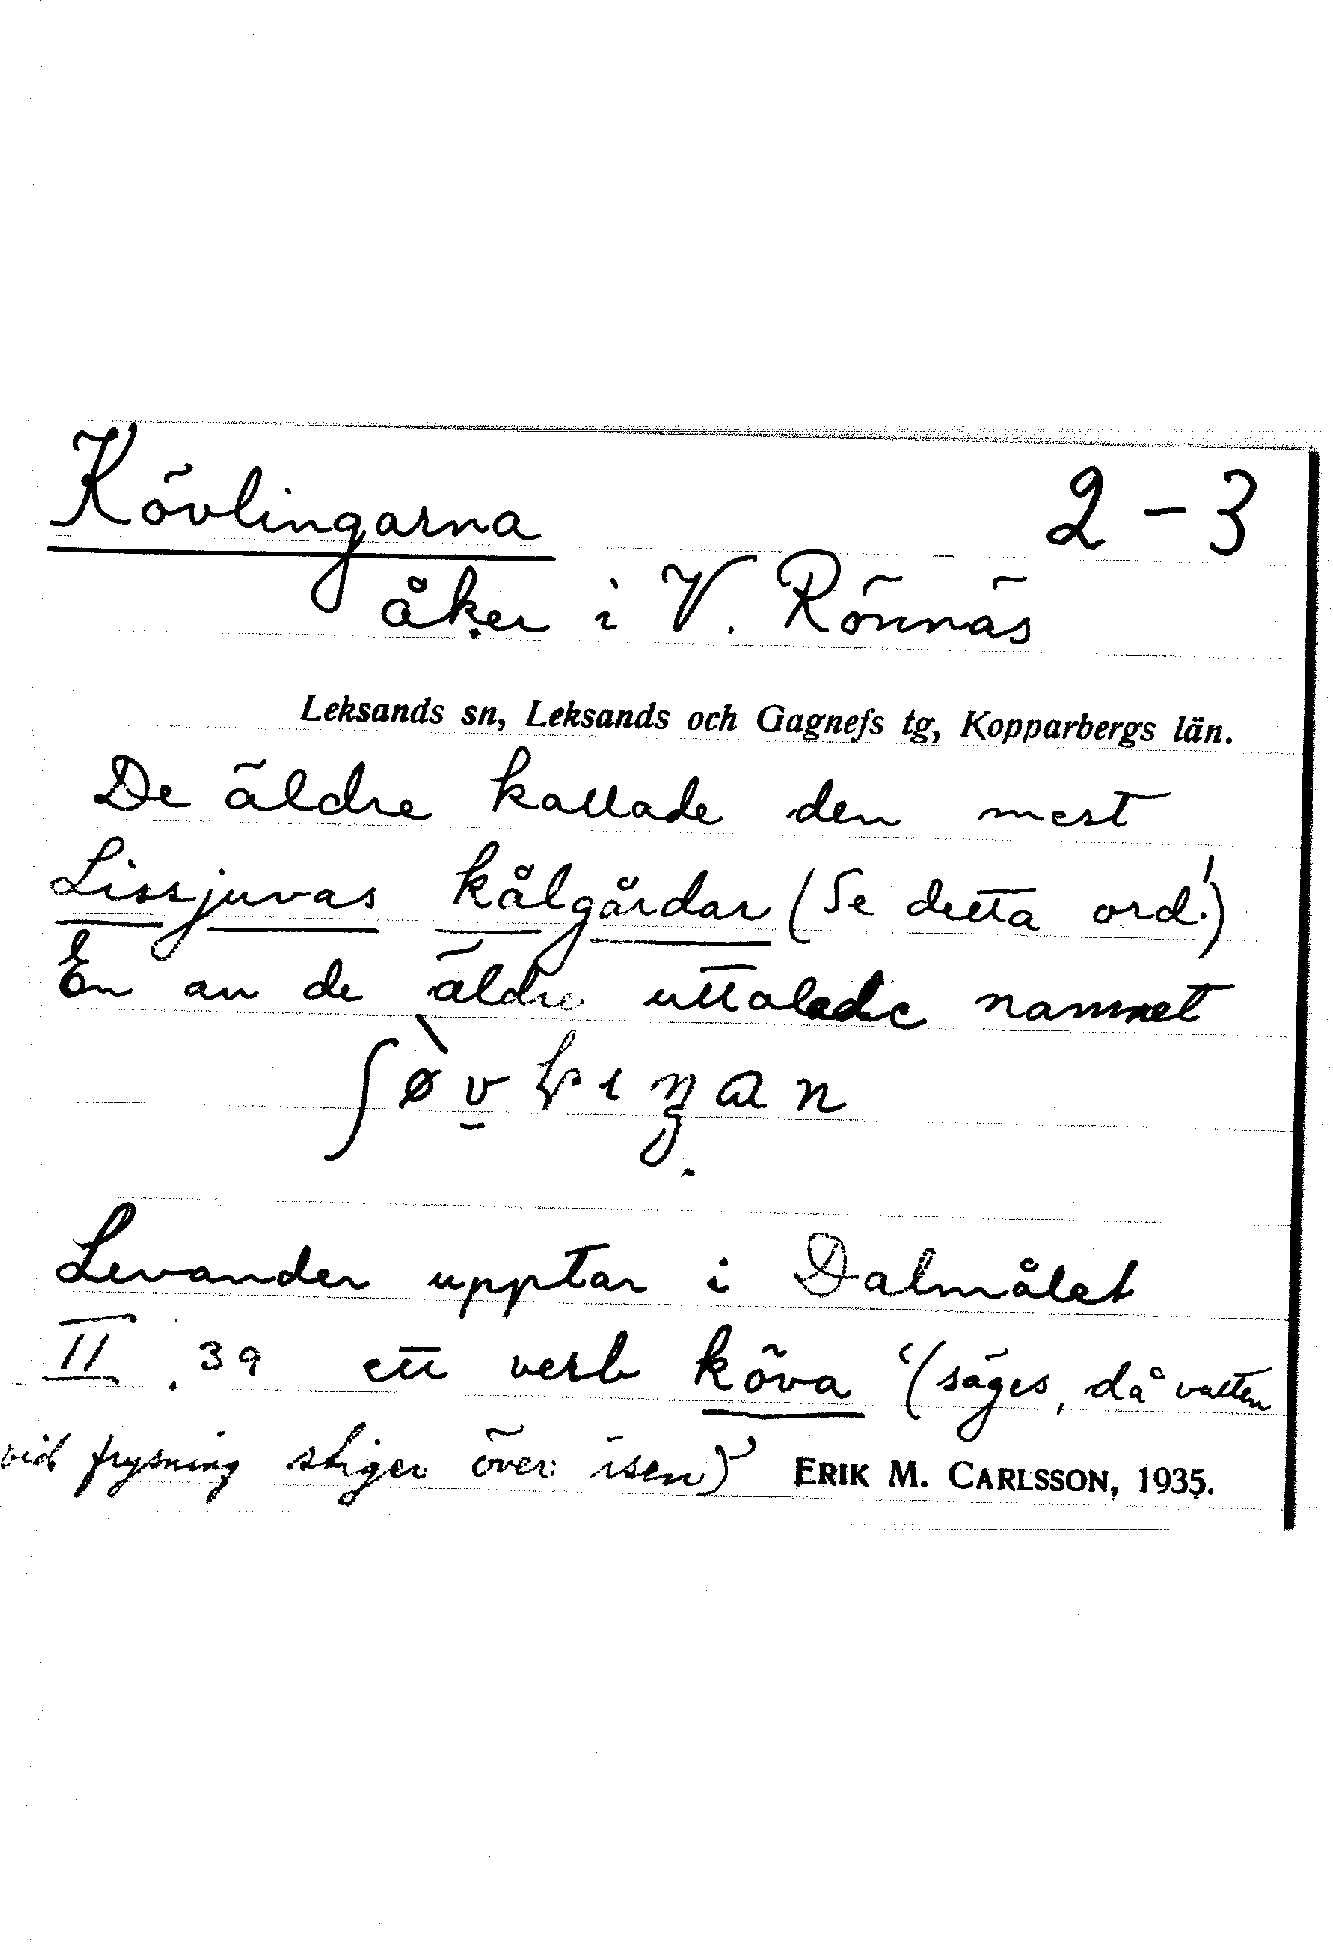 Kövlingarna 2-3
åker i V. Rönnäs
Leksands sn, Leksands och Gagnefs tg, Kopparbergs län.
De äldre kallade den mest
Lissjuvas kålgårdar (Se detta ord!)
En av de äldre uttalade namnet
Levander upptar i Dalmålet
II. 39 ett verb köva '(säges, då vatten
vid frysning stiger över isen)'
ERIK M. CARLSSON, 1935.